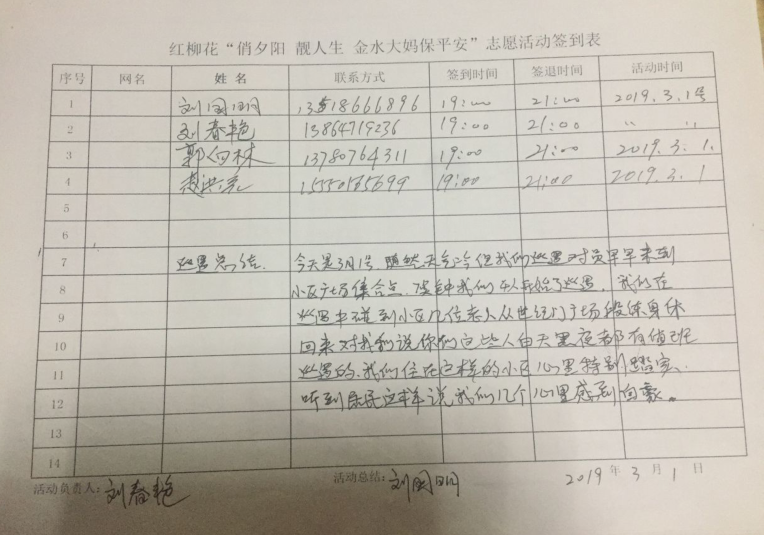 红柳花“俏夕阳 靓人生 金水大妈保平安”志愿活动签到表
序号 网名 姓名 联系方式 签到时间 签退时间 活动时间
1 刘国明 13518666896 19:00 21:00 2019.3.1号
2 刘春艳 13864719236 19:00 21:00 〃 〃
3 郭向林 13780764311 19:00 21:00 2019.3.1.
4 19:00 21:00 2019.3.1
5
6
7 巡逻总结. 今天是3月1号.随然天气冷但我们巡逻对员早早来到
8 小区广场集合点.没钟我们4人开始了巡逻.我们在
9 巡逻中碰到小区几位老人从世纪广场段练身体
10 回来对我们说你们这些人白天黑夜都有值班
11 巡逻的.我们住在这样的小区心里特别踏实.
12 听到居民这样说我们几个心里感到自豪。
13
14
活动负责人:刘春艳 活动总结:刘国明 2019年3月1日